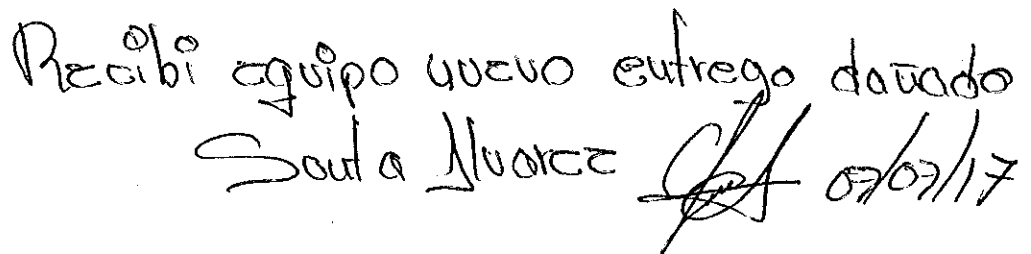 Recibi equipo nuevo entrego dañado
Saul a Alvarez 07/07/17